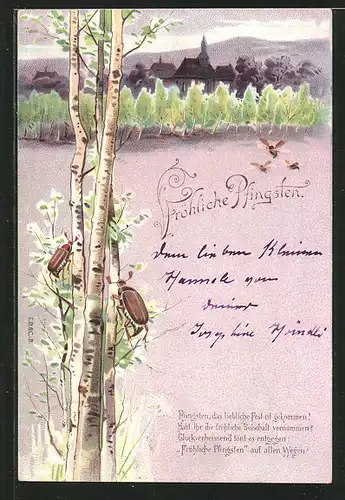 Fröhliche Pfingsten.
dem lieben Kleinen
Hannele von
deiner
Josephine
Pfingsten, das liebliche Fest ist gekommen!
Habt Ihr die fröhliche Botschaft vernommen?
Glückverheissend tönt es entgegen:
„Fröhliche Pfingsten" auf allen Wegen!